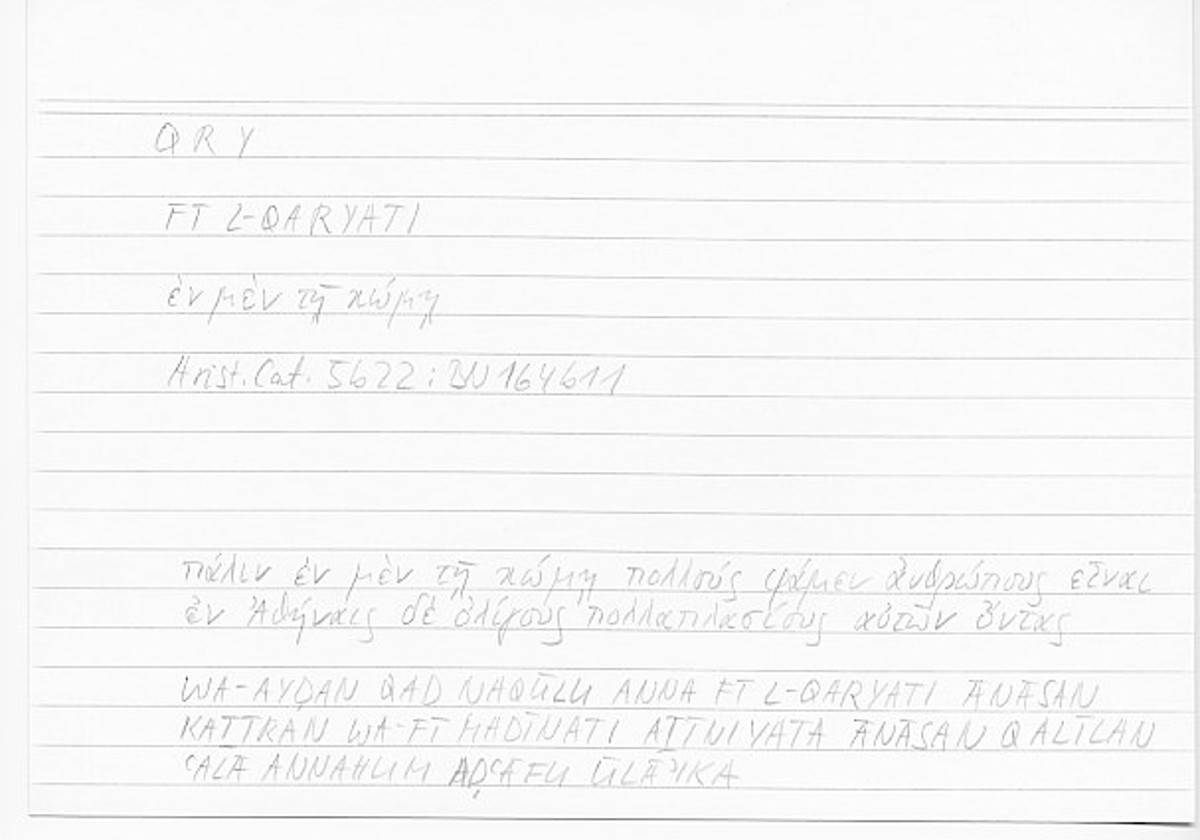 QRY
FĪ L-QARYATI
ἐν μὲν τῇ κώμῃ
Arist. Cat. 5b22 : BN164b11
πάλιν ἐν μὲν τῇ κώμῃ πολλούς φάμεν ἀνθρώπους εἶναι
ἐν Ἀθήναις δὲ ὀλίγους πολλαπλασίους αὐτῶν ὄντας
WA-AYḌAN QAD NAQŪLU ANNA FĪ L-QARYATI ĀNĀSAN
KAṮĪRAN WA-FĪ MADĪNATI AṮĪNIYATA ĀNĀSAN QALĪLAN
ʿALĀ ANNAHUM AḌʿĀFU ŪLĀʾIKA